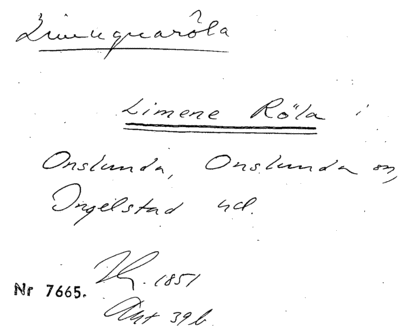 Limuguaröla
Limene Röla i
Onslunda, Onslunda sn,
Ingelstad hd.
1851
Nr 7665.
Akt 39 b